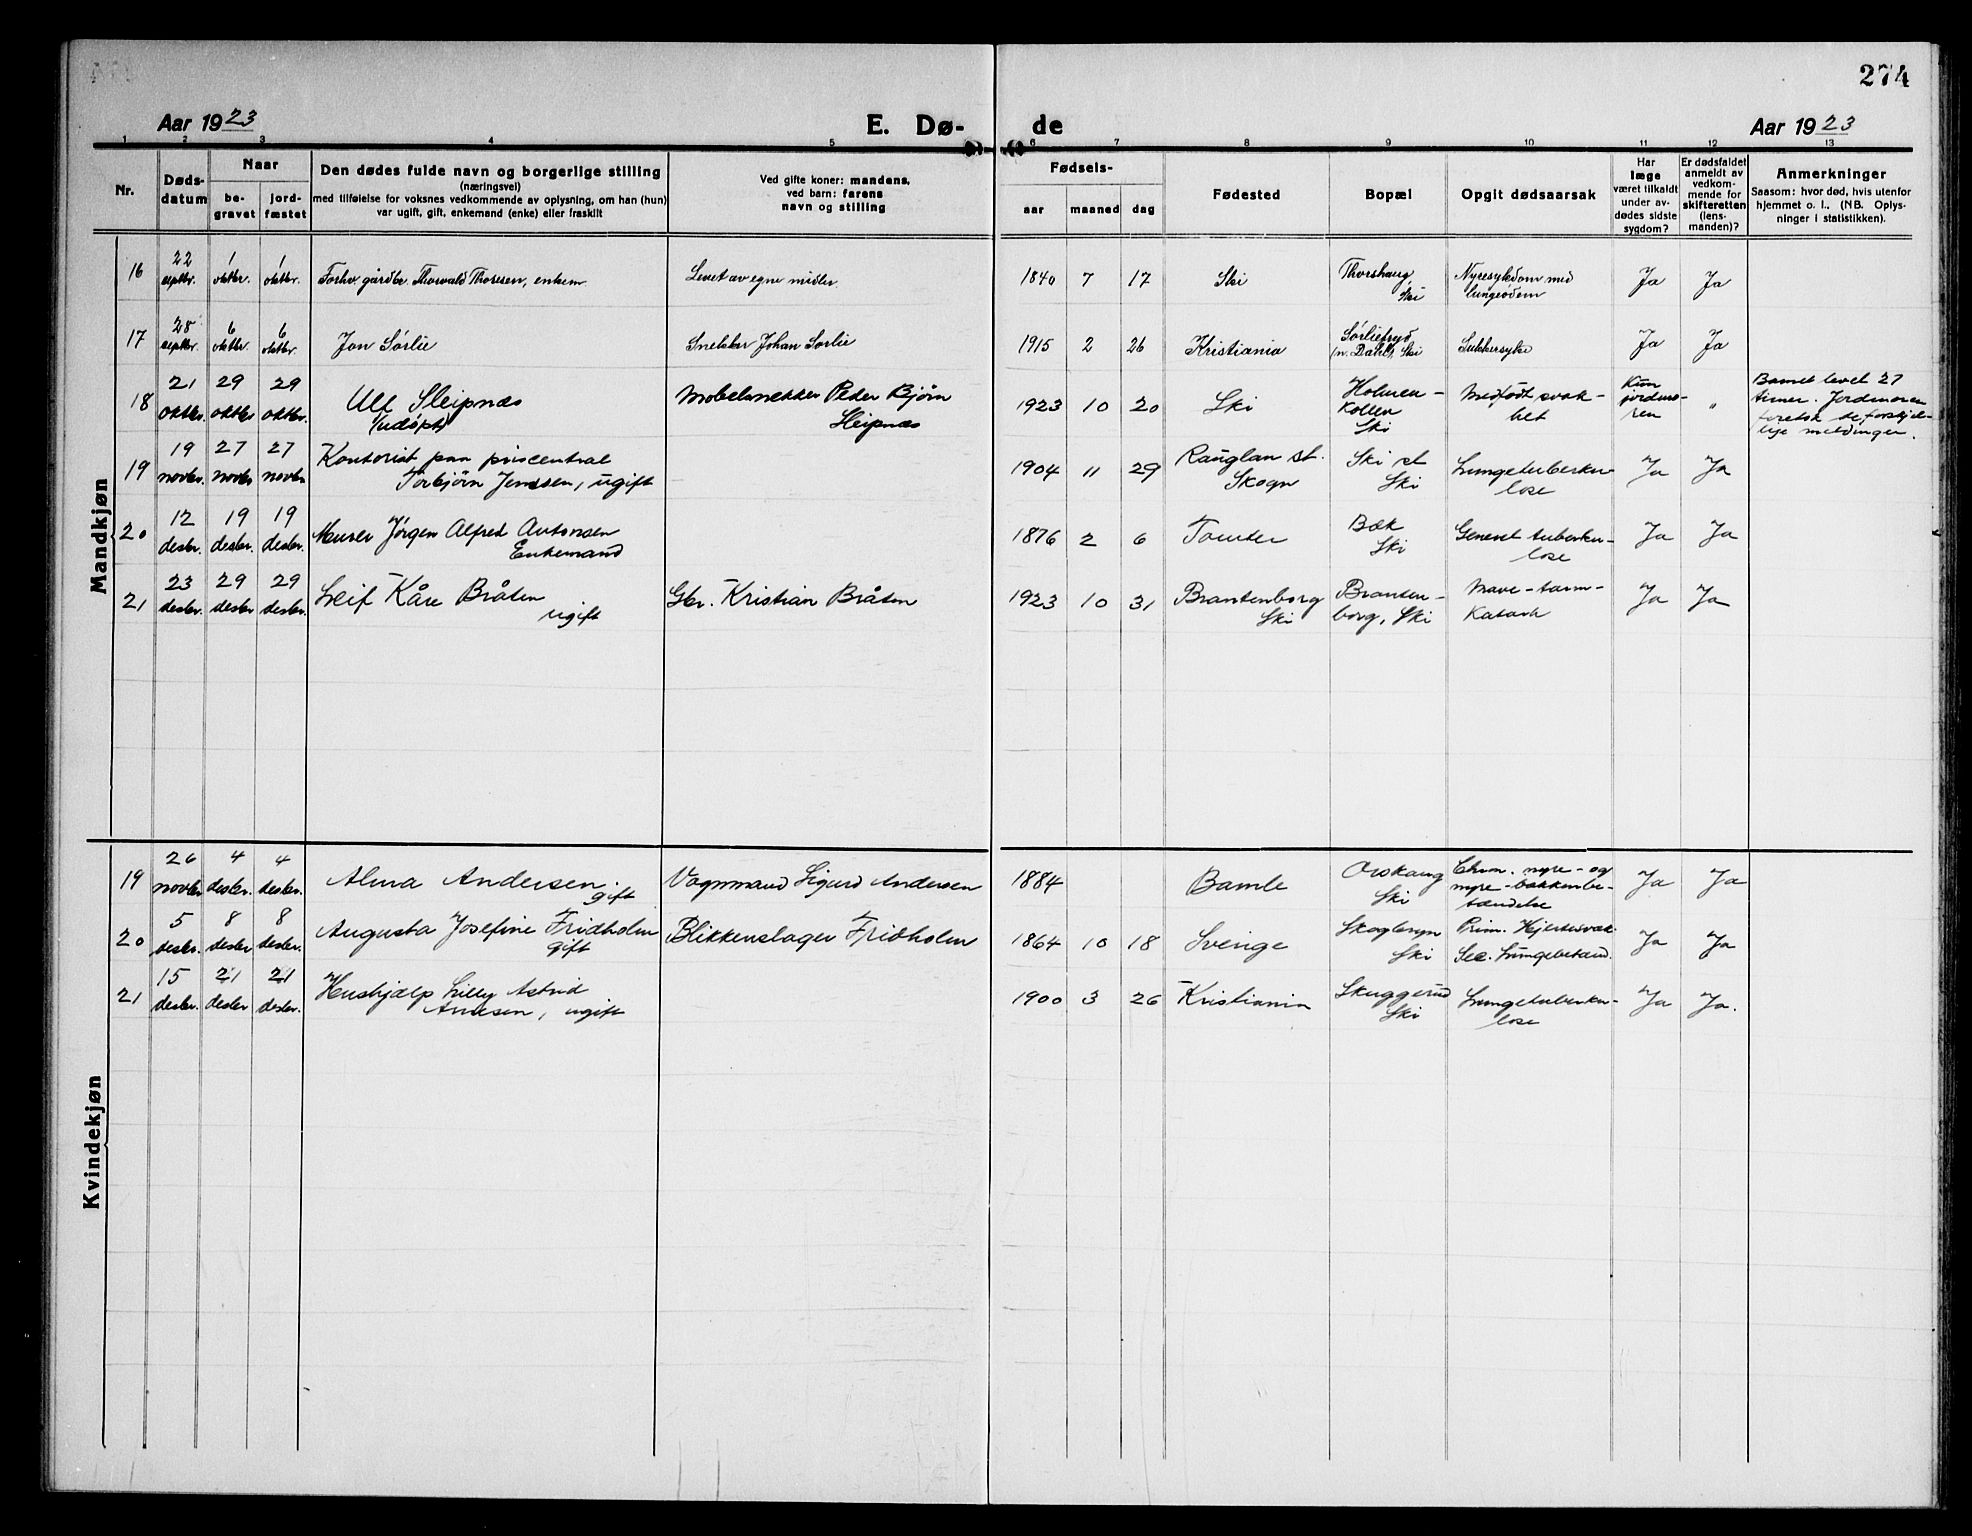 274
Aar 1923
E. Dø-
de
Aar 1923
1 2 3 4 5 6 7 8 9 10 11 12 13
Nr.
Døds-
datum
Naar
be-
gravet
jord-
fæstet
Den dødes fulde navn og borgerlige stilling
(næringsvei)
med tilføielse for voksnes vedkommende av oplysning, om han (hun)
var ugift, gift, enkemand (enke) eller fraskilt
Ved gifte koner: mandens,
ved barn: farens
navn og stilling
Fødsels-
aar maaned dag
Fødested
Bopæl
Opgit dødsaarsak
Har
læge
været tilkaldt
under av-
dødes sidste
sygdom?
Er dødsfaldet
anmeldt av
vedkom-
mende for
skifteretten
(lens-
manden)?
Anmerkninger
Saasom: hvor død, hvis utenfor
hjemmet o. l., (NB. Oplys-
ninger i statistikken).
Mandkjøn
16
22
septbr.
1
oktbr.
1
oktbr.
Forhv. gårdbr. Thorvald Thoresen, enkem
Levet av egne midler
1840 7 17
Ski
Thorshaug
Ski
Nyresykdom med
lungeødem
Ja Ja
17
28
septbr.
6
oktbr.
6
oktbr.
Jon Sørlie
Snekker Johan Sørlie
1915 2 26
Kristiania
(n. Dahl), Ski
Sukkersyke
Ja Ja
18
21
oktbr.
29
oktbr.
29
oktbr.
Ulf Sleipnæs
(udøpt)
Møbelsnekker Peder Bjørn
Sleipnæs
1923 10 20
Ski
Holmen-
kollen
Ski
Medfødt svak-
het
Kun
jordmo-
ren
"
Barnet levet 27
timer. Jordmoren
foretok de forskjel-
lige meldinger.
19
19
novbr.
27
novbr.
27
novbr
Kontorist paa priscentral
Torbjørn Jenssen, ugift
1904 11 29
Rauglan st.
Skogn
Ski st
Ski
Lungetuberku-
lose
Ja Ja
20
12
desbr.
19
desbr.
19
desbr.
Murer Jørgen Alfred Antonsen
Enkemand
1876 2 6
Tomter
Bæk
Ski
Generel tuberku-
lose
Ja Ja
21
23
desbr.
29
desbr
29
desbr.
Leif Kåre Bråten
ugift
Gbr. Kristian Bråten
1923 10 31
Brantenborg
Ski
Branten-
borg, Ski
Mave-tarm-
katarh
Ja Ja
Kvindekjøn
19
26
novbr
4
desbr.
4
desbr.
Alma Andersen
gift
Vognmand Sigurd Andersen
1884
Bamle
Ski
Chron. nyre- og
nyre-bækkenbe-
tændelse
Ja Ja
20
5
desbr.
8
desbr
8
desbr.
Augusta Josefine Fridholm
gift
Blikkenslager Fridholm
1864 10 18
Sverige
Ski
Prim. Hjertesvak.
Sec. Lungebetænd.
Ja Ja
21
15
desbr.
21
desbr
21
desbr.
Hushjælp Lilly Astrid
ugift
1900 3 26
Kristiania
Skuggerud
Ski
Lungetuberku-
lose
Ja Ja.